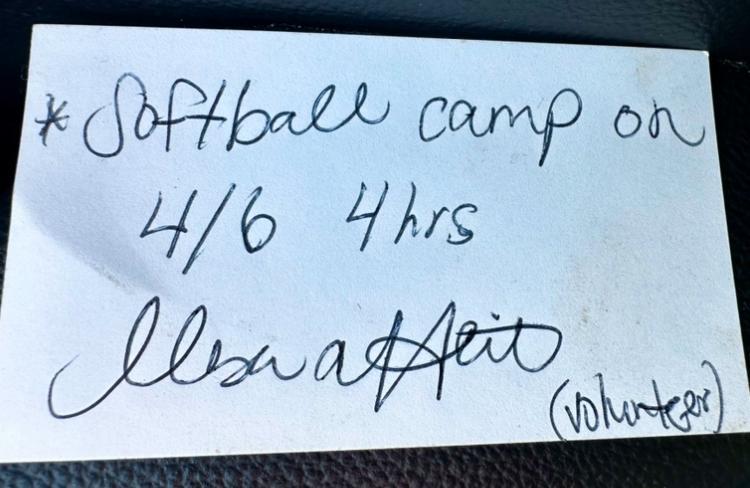 * Softball camp on
4/6 4hrs
(volunteer)